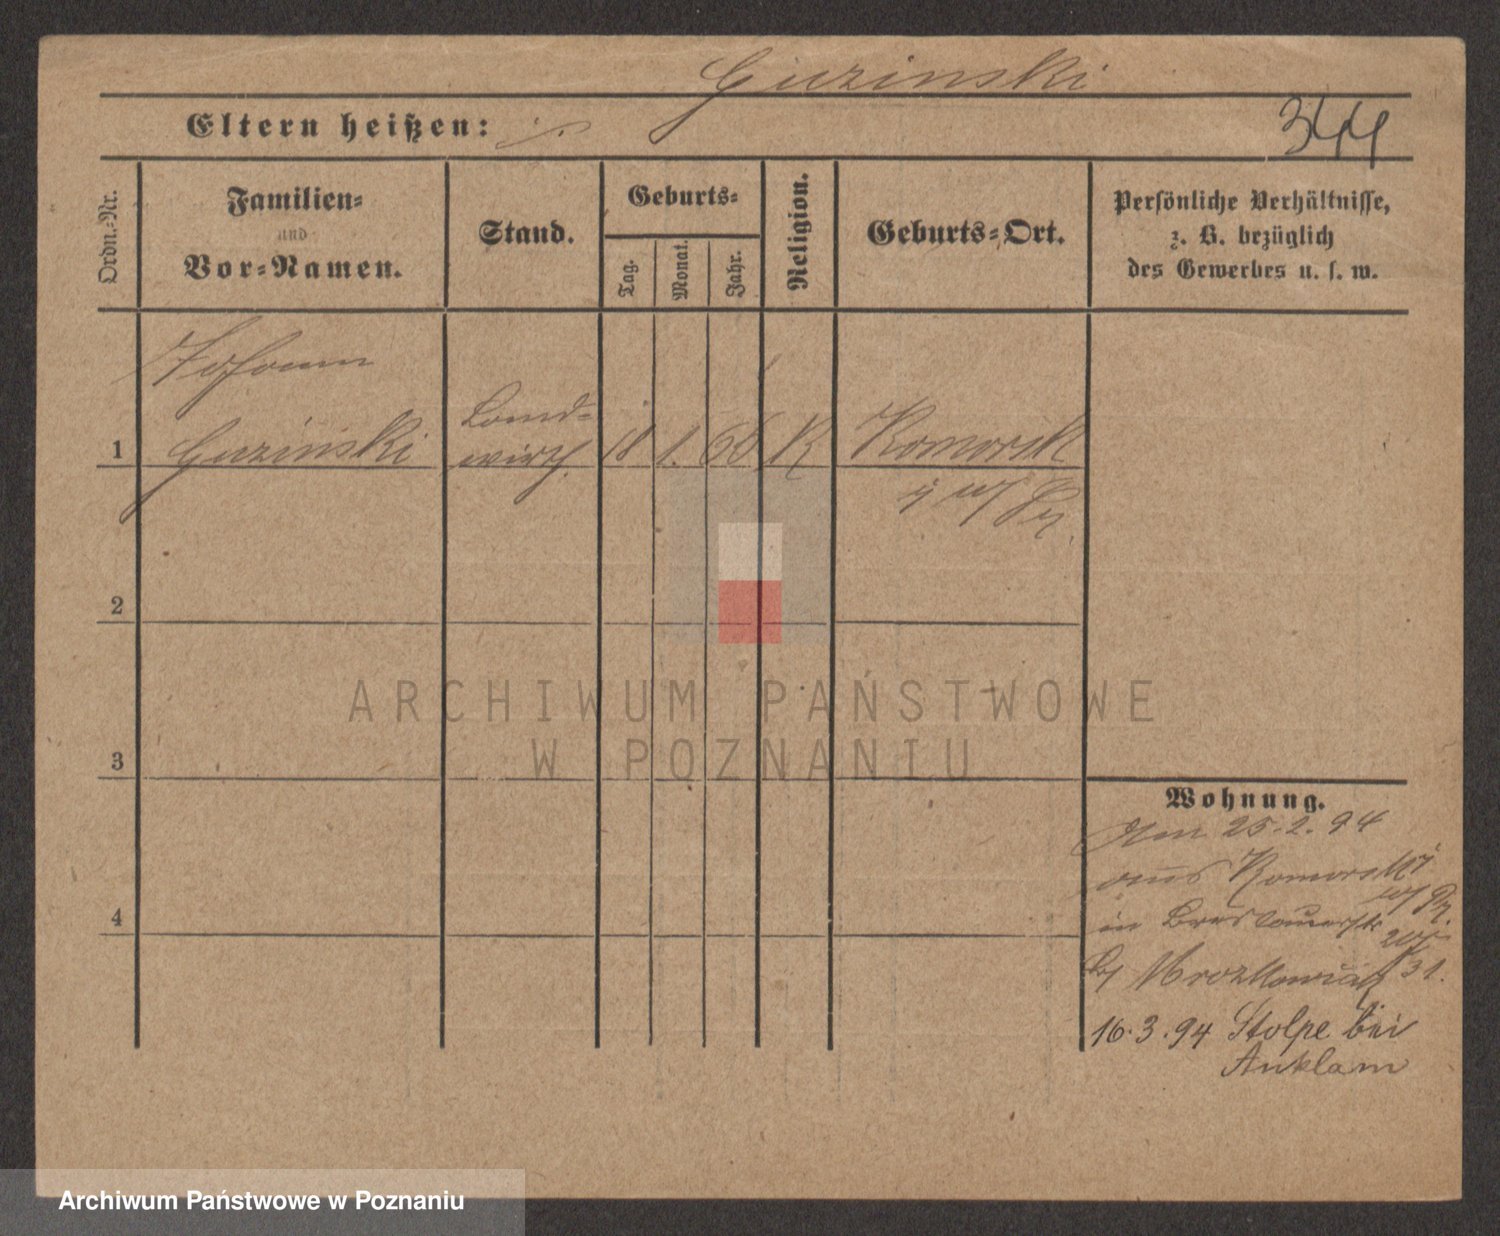 Guzinski
Eltern heißen: ./.
344
Ordn.-Nr.
Familien-
und
Vor-Namen.
Stand.
Geburts-
Tag.
Monat.
Jahr.
Religion.
Geburts-Ort.
Persönliche Verhältnisse,
z. B. bezüglich
des Gewerbes u. s. w.
Johann
1 Guzinski
Land-
wirth.
18 1. K Komorsk
i w/ Pr.
2
3
4
ARCHIWUM PAŃSTWOWE
W POZNANIU
Wohnung.
Am 25.2.94
aus Komorsk i
w/ Pr.
in Breslauerstr
20
b/ Mrozkowiak 31.
16.3.94 Stolpe bei
Anklam
Archiwum Państwowe w Poznaniu